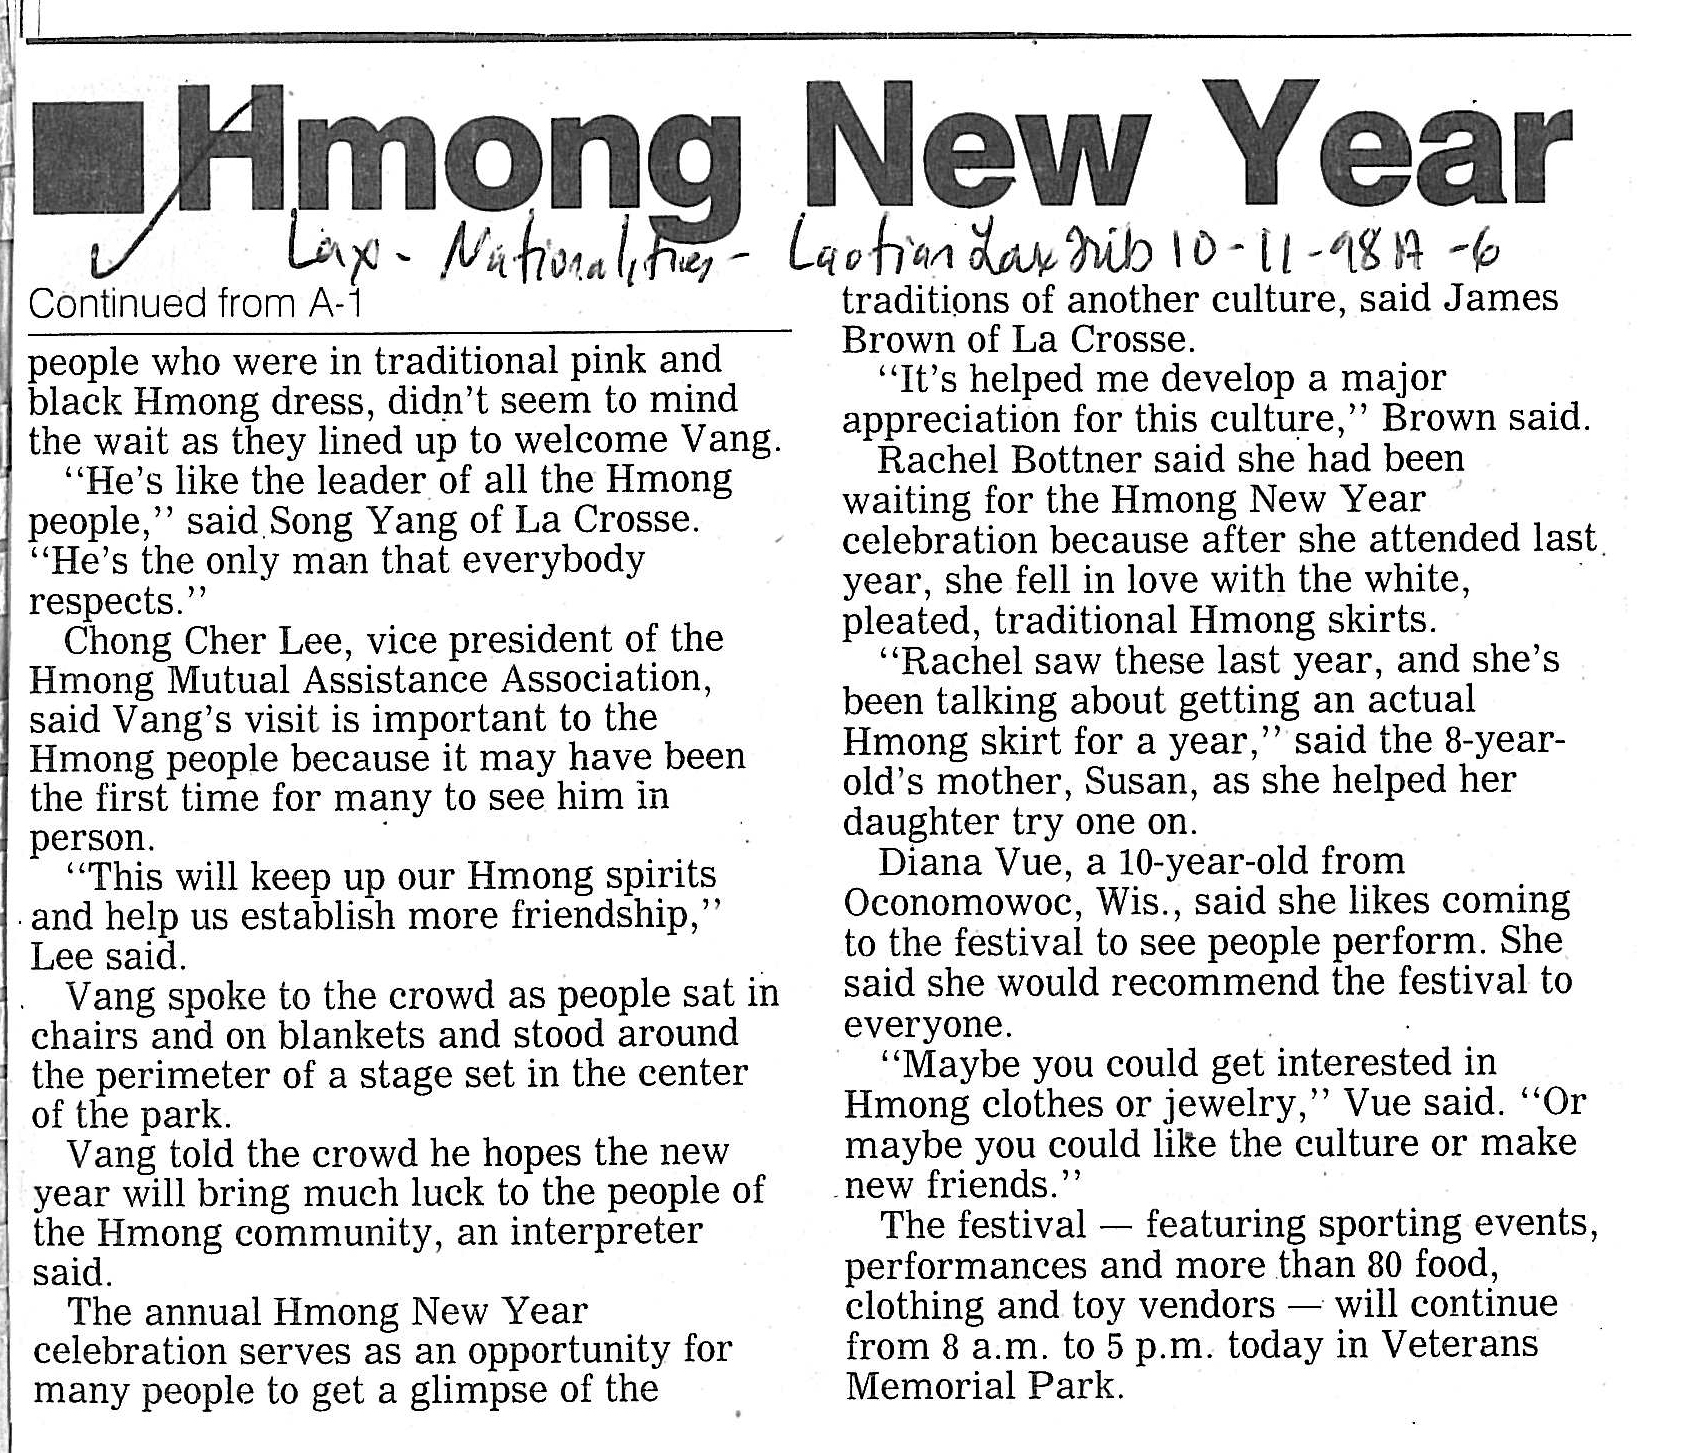 Hmong New Year
Lax - Nationalities - Laotian Lax Trib 10-11-98 A-6
Continued from A-1
people who were in traditional pink and
black Hmong dress, didn't seem to mind
the wait as they lined up to welcome Vang.
“He's like the leader of all the Hmong
people,” said Song Yang of La Crosse.
“He's the only man that everybody
respects.”
Chong Cher Lee, vice president of the
Hmong Mutual Assistance Association,
said Vang's visit is important to the
Hmong people because it may have been
the first time for many to see him in
person.
“This will keep up our Hmong spirits
and help us establish more friendship,”
Lee said.
Vang spoke to the crowd as people sat in
chairs and on blankets and stood around
the perimeter of a stage set in the center
of the park.
Vang told the crowd he hopes the new
year will bring much luck to the people of
the Hmong community, an interpreter
said.
The annual Hmong New Year
celebration serves as an opportunity for
many people to get a glimpse of the
traditions of another culture, said James
Brown of La Crosse.
“It's helped me develop a major
appreciation for this culture,” Brown said.
Rachel Bottner said she had been
waiting for the Hmong New Year
celebration because after she attended last
year, she fell in love with the white,
pleated, traditional Hmong skirts.
“Rachel saw these last year, and she's
been talking about getting an actual
Hmong skirt for a year,” said the 8-year-
old's mother, Susan, as she helped her
daughter try one on.
Diana Vue, a 10-year-old from
Oconomowoc, Wis., said she likes coming
to the festival to see people perform. She
said she would recommend the festival to
everyone.
“Maybe you could get interested in
Hmong clothes or jewelry,” Vue said. “Or
maybe you could like the culture or make
new friends.”
The festival — featuring sporting events,
performances and more than 80 food,
clothing and toy vendors — will continue
from 8 a.m. to 5 p.m. today in Veterans
Memorial Park.